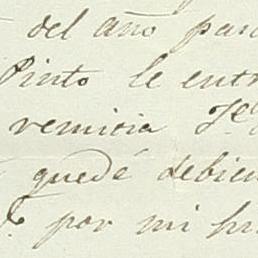 del año pas
Pinto le entr
remisia
quedé debien
por mi h